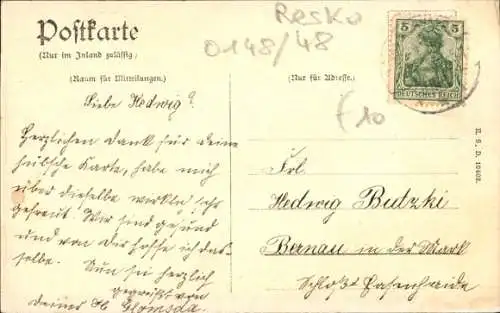 Postkarte
(Nur im Inland zulässig.)
(Raum für Mitteilungen.)
Resko
0148/48
(Nur für Adresse.)
5 5
DEUTSCHES REICH
10
R. S. D. 10403.
Liebe Hedwig!
Herzlichen Dank für deine
hübsche Karte, habe mich
über dieselbe wirklich sehr
gefreut. Wir sind gesund
und von Dir hoffe ich das-
selbe. Nun sei herzlich
gegrüßt von
deiner
Frl.
Hedwig Butzki
Bernau in der Mark
Schloß